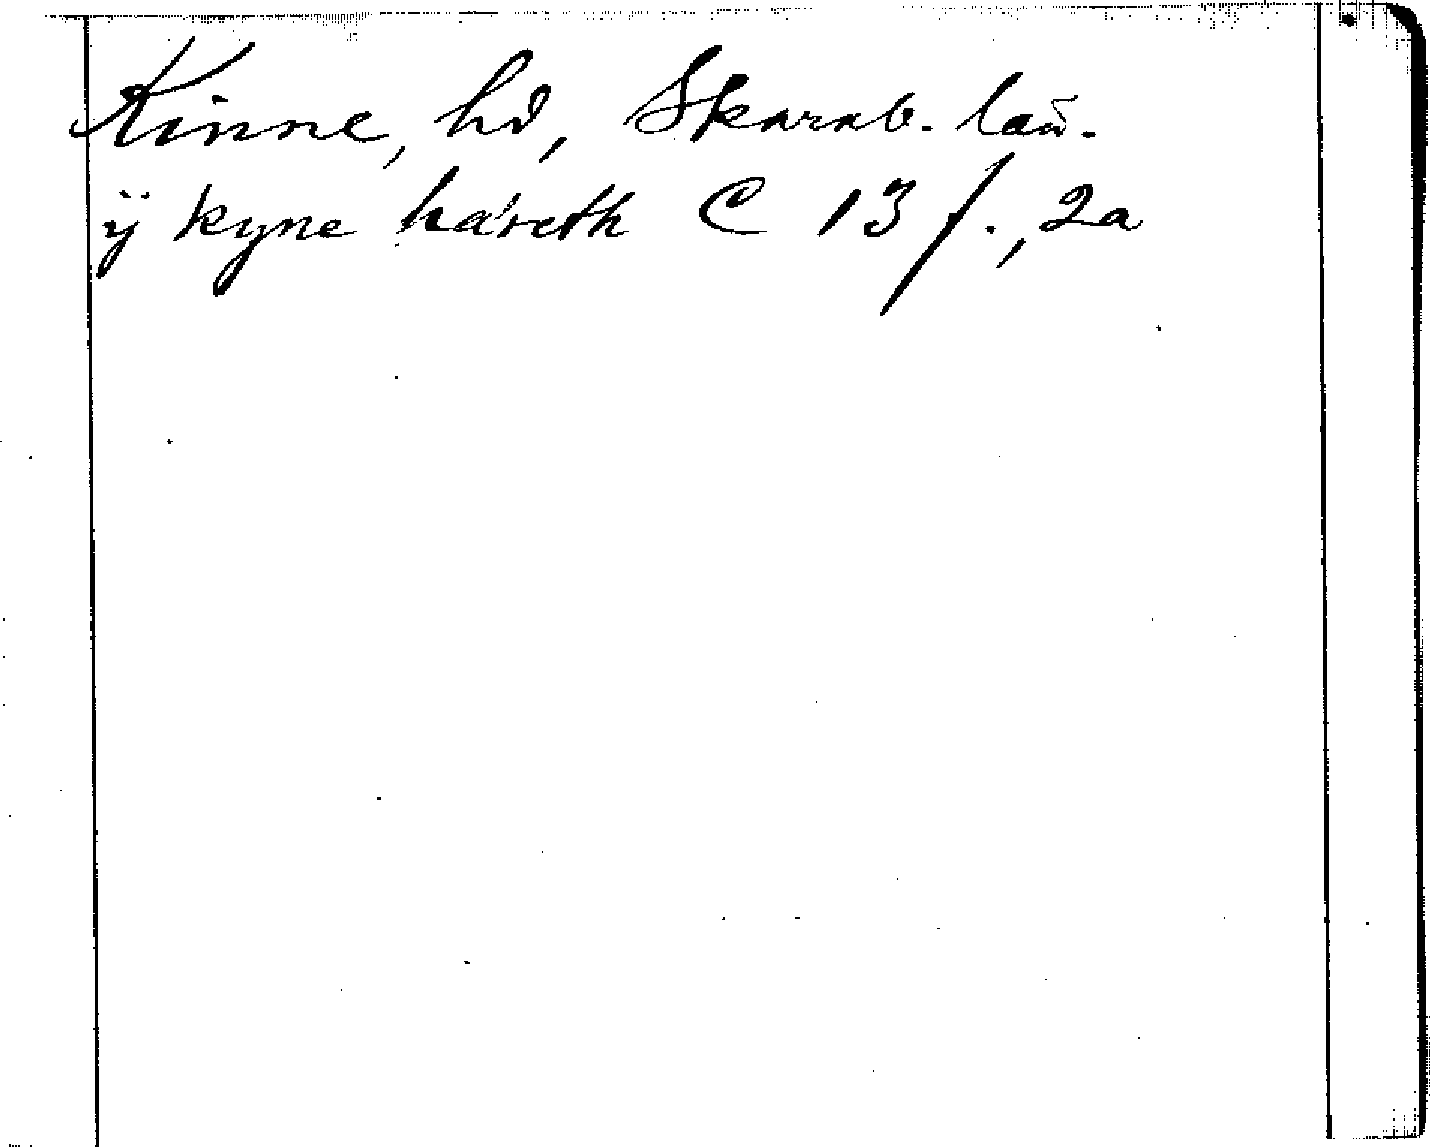 Kinne, hd, Skarab. län.
ÿ kyne háreth C 13 f., 2a